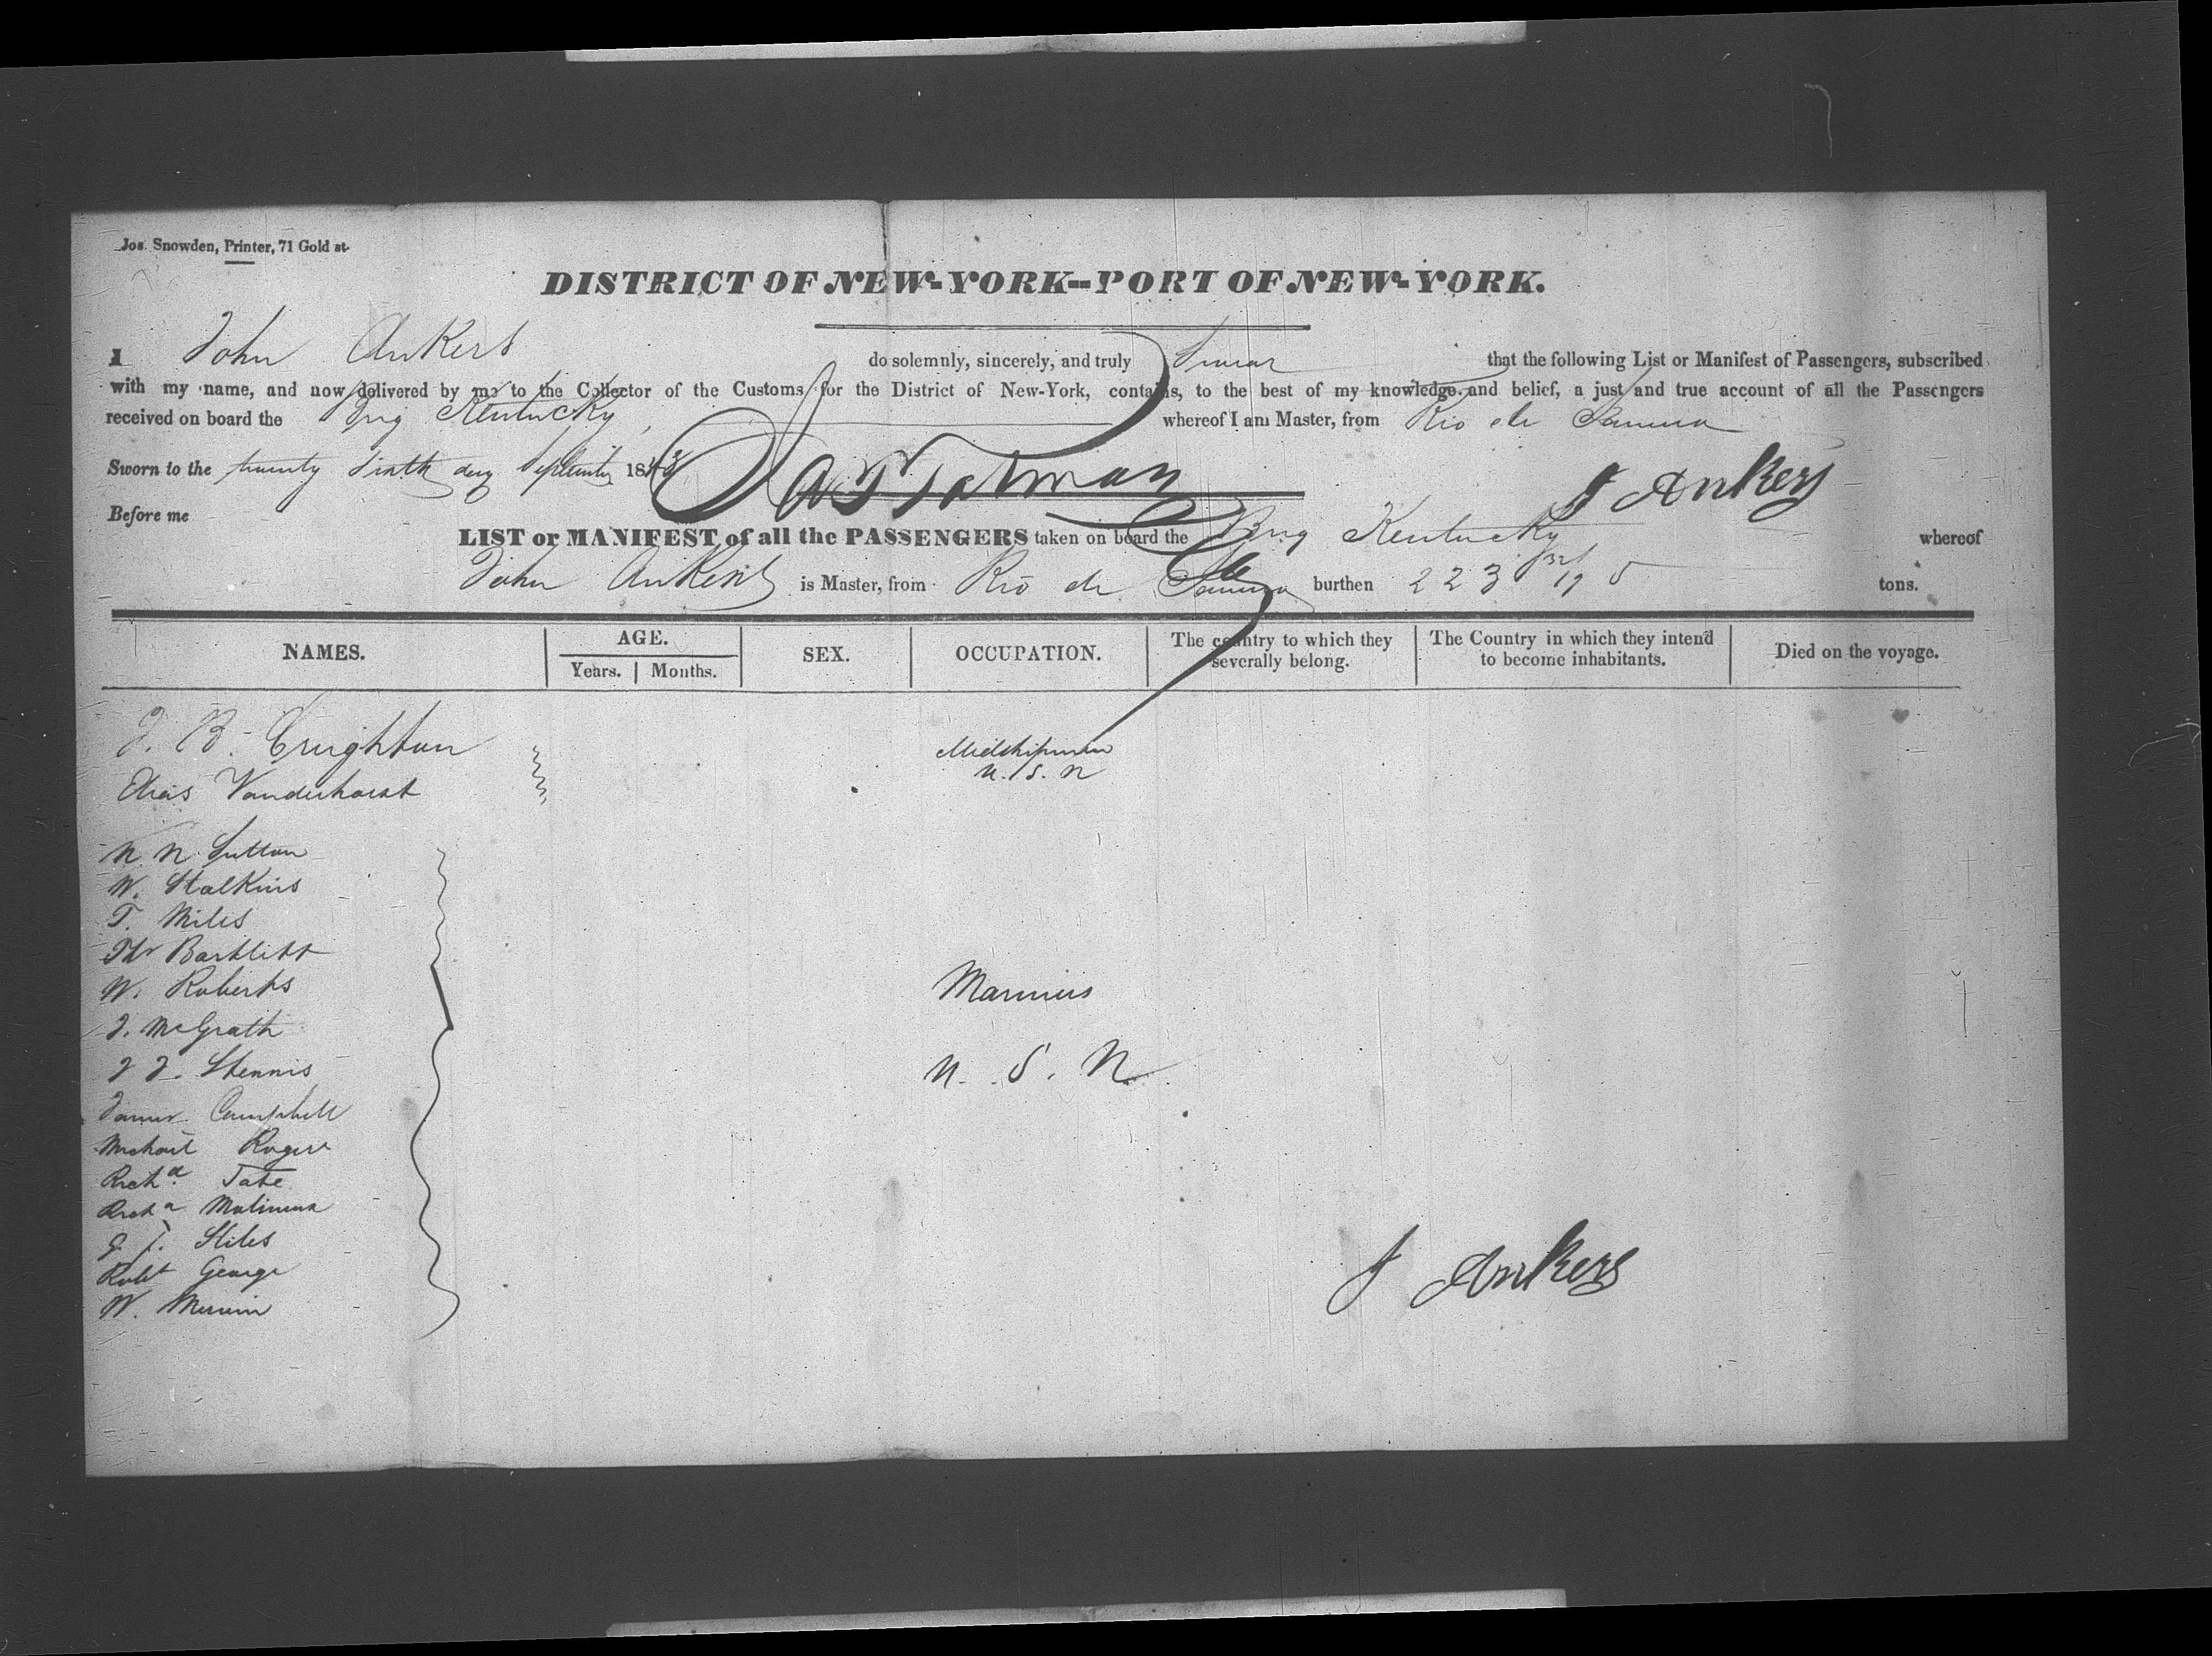 Jos. Snowden, Printer, 71 Gold st.
DISTRICT OF NEW-YORK--PORT OF NEW-YORK.
I John Ankers do solemnly, sincerely, and truly Swear that the following List or Manifest of Passengers, subscribed
with my name, and now delivered by me to the Collector of the Customs for the District of New-York, contains, to the best of my knowledge and belief, a just and true account of all the Passengers
received on board the Brig Kentucky, whereof I am Master, from Rio de Janeiro
Sworn to the twenty Sixth day September 1843
J Ankers
Before me
LIST or MANIFEST of all the PASSENGERS taken on board the Brig Kentucky whereof
John Ankers is Master, from Rio de Janeiro burthen 223 tons.
NAMES. AGE. SEX. OCCUPATION. The country to which they severally belong. The Country in which they intend to become inhabitants. Died on the voyage.
Years. Months.
J. B. Creighton Midshipmen
U. S. N
Elias Vanderhorst
N. N. Sutton
W. Stalkins
T. Miles
Thos Bartlett
W. Roberts Mariners
J. McGrath
J J. Stennis U. S. N
James Campbell
Michael Rogers
Richd Tate
Richd
G. J. Stiles
Robt George
W.
J Ankers